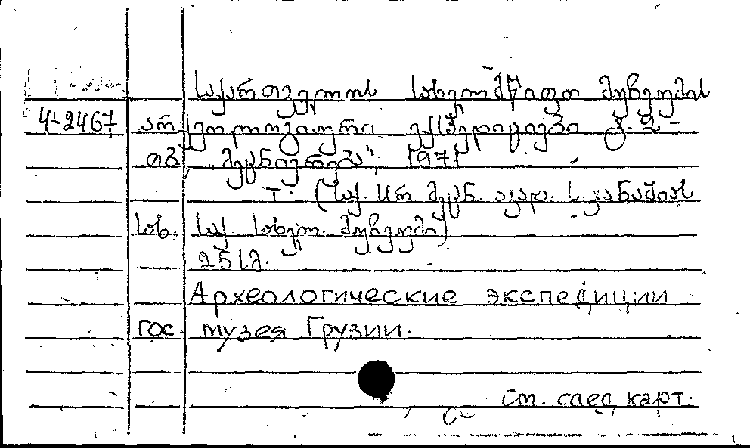 საქართველოს სახელმწიფო მუზეუმის
4-2467 არქეოლოგიური ექსპედიციები ტ. 2-
თბ „მეცნიერება“, 1971
(საქ. სსრ მეცნ. აკად. ს. ჯანაშიას
სახ. საქ. სახელ. მუზეუმი)
251გ.
Археологические экспедиции
гос. музея Грузии.
См. след. карт.